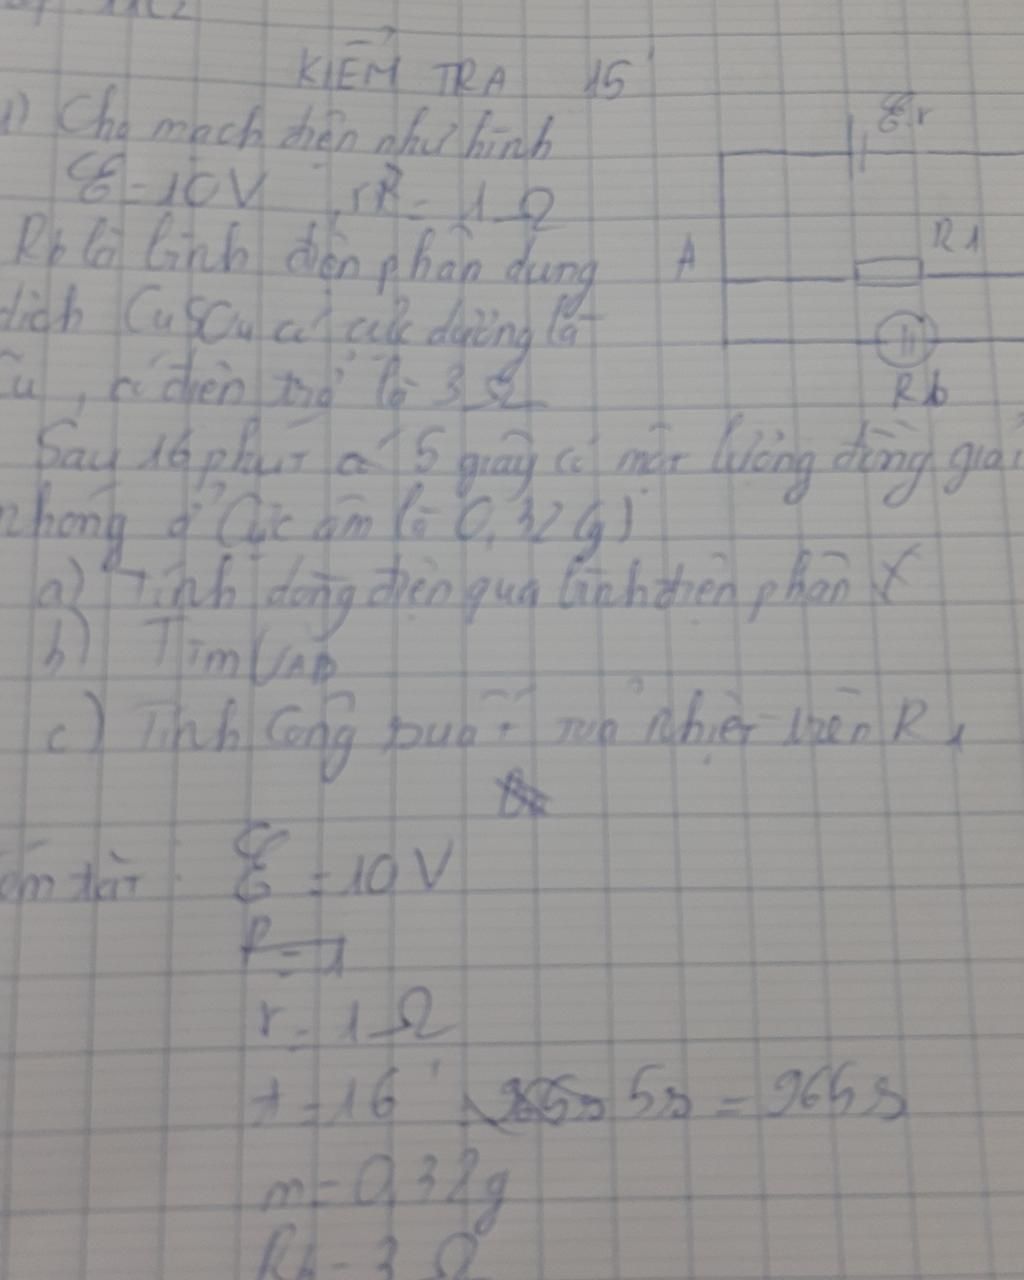 KIỂM TRA 15'
1) Cho mạch điện như hình
E = 10V, r = 1Ω
Rb là bình điện phân dung
dịch CuSO4 có cực dương là
Cu, có điện trở là 3Ω
Sau 16 phút 5 giây có một lượng đồng giải
phóng ở Cực âm là 0,32(g)
a) Tính dòng điện qua bình điện phân
b) Tìm UAB
c) Tính Công suất toả nhiệt trên R1
E,r
A
R1
Rb
tóm tắt: E = 10V
r = 1Ω
t = 16' 5s = 965s
m = 0,32g
Rb = 3Ω